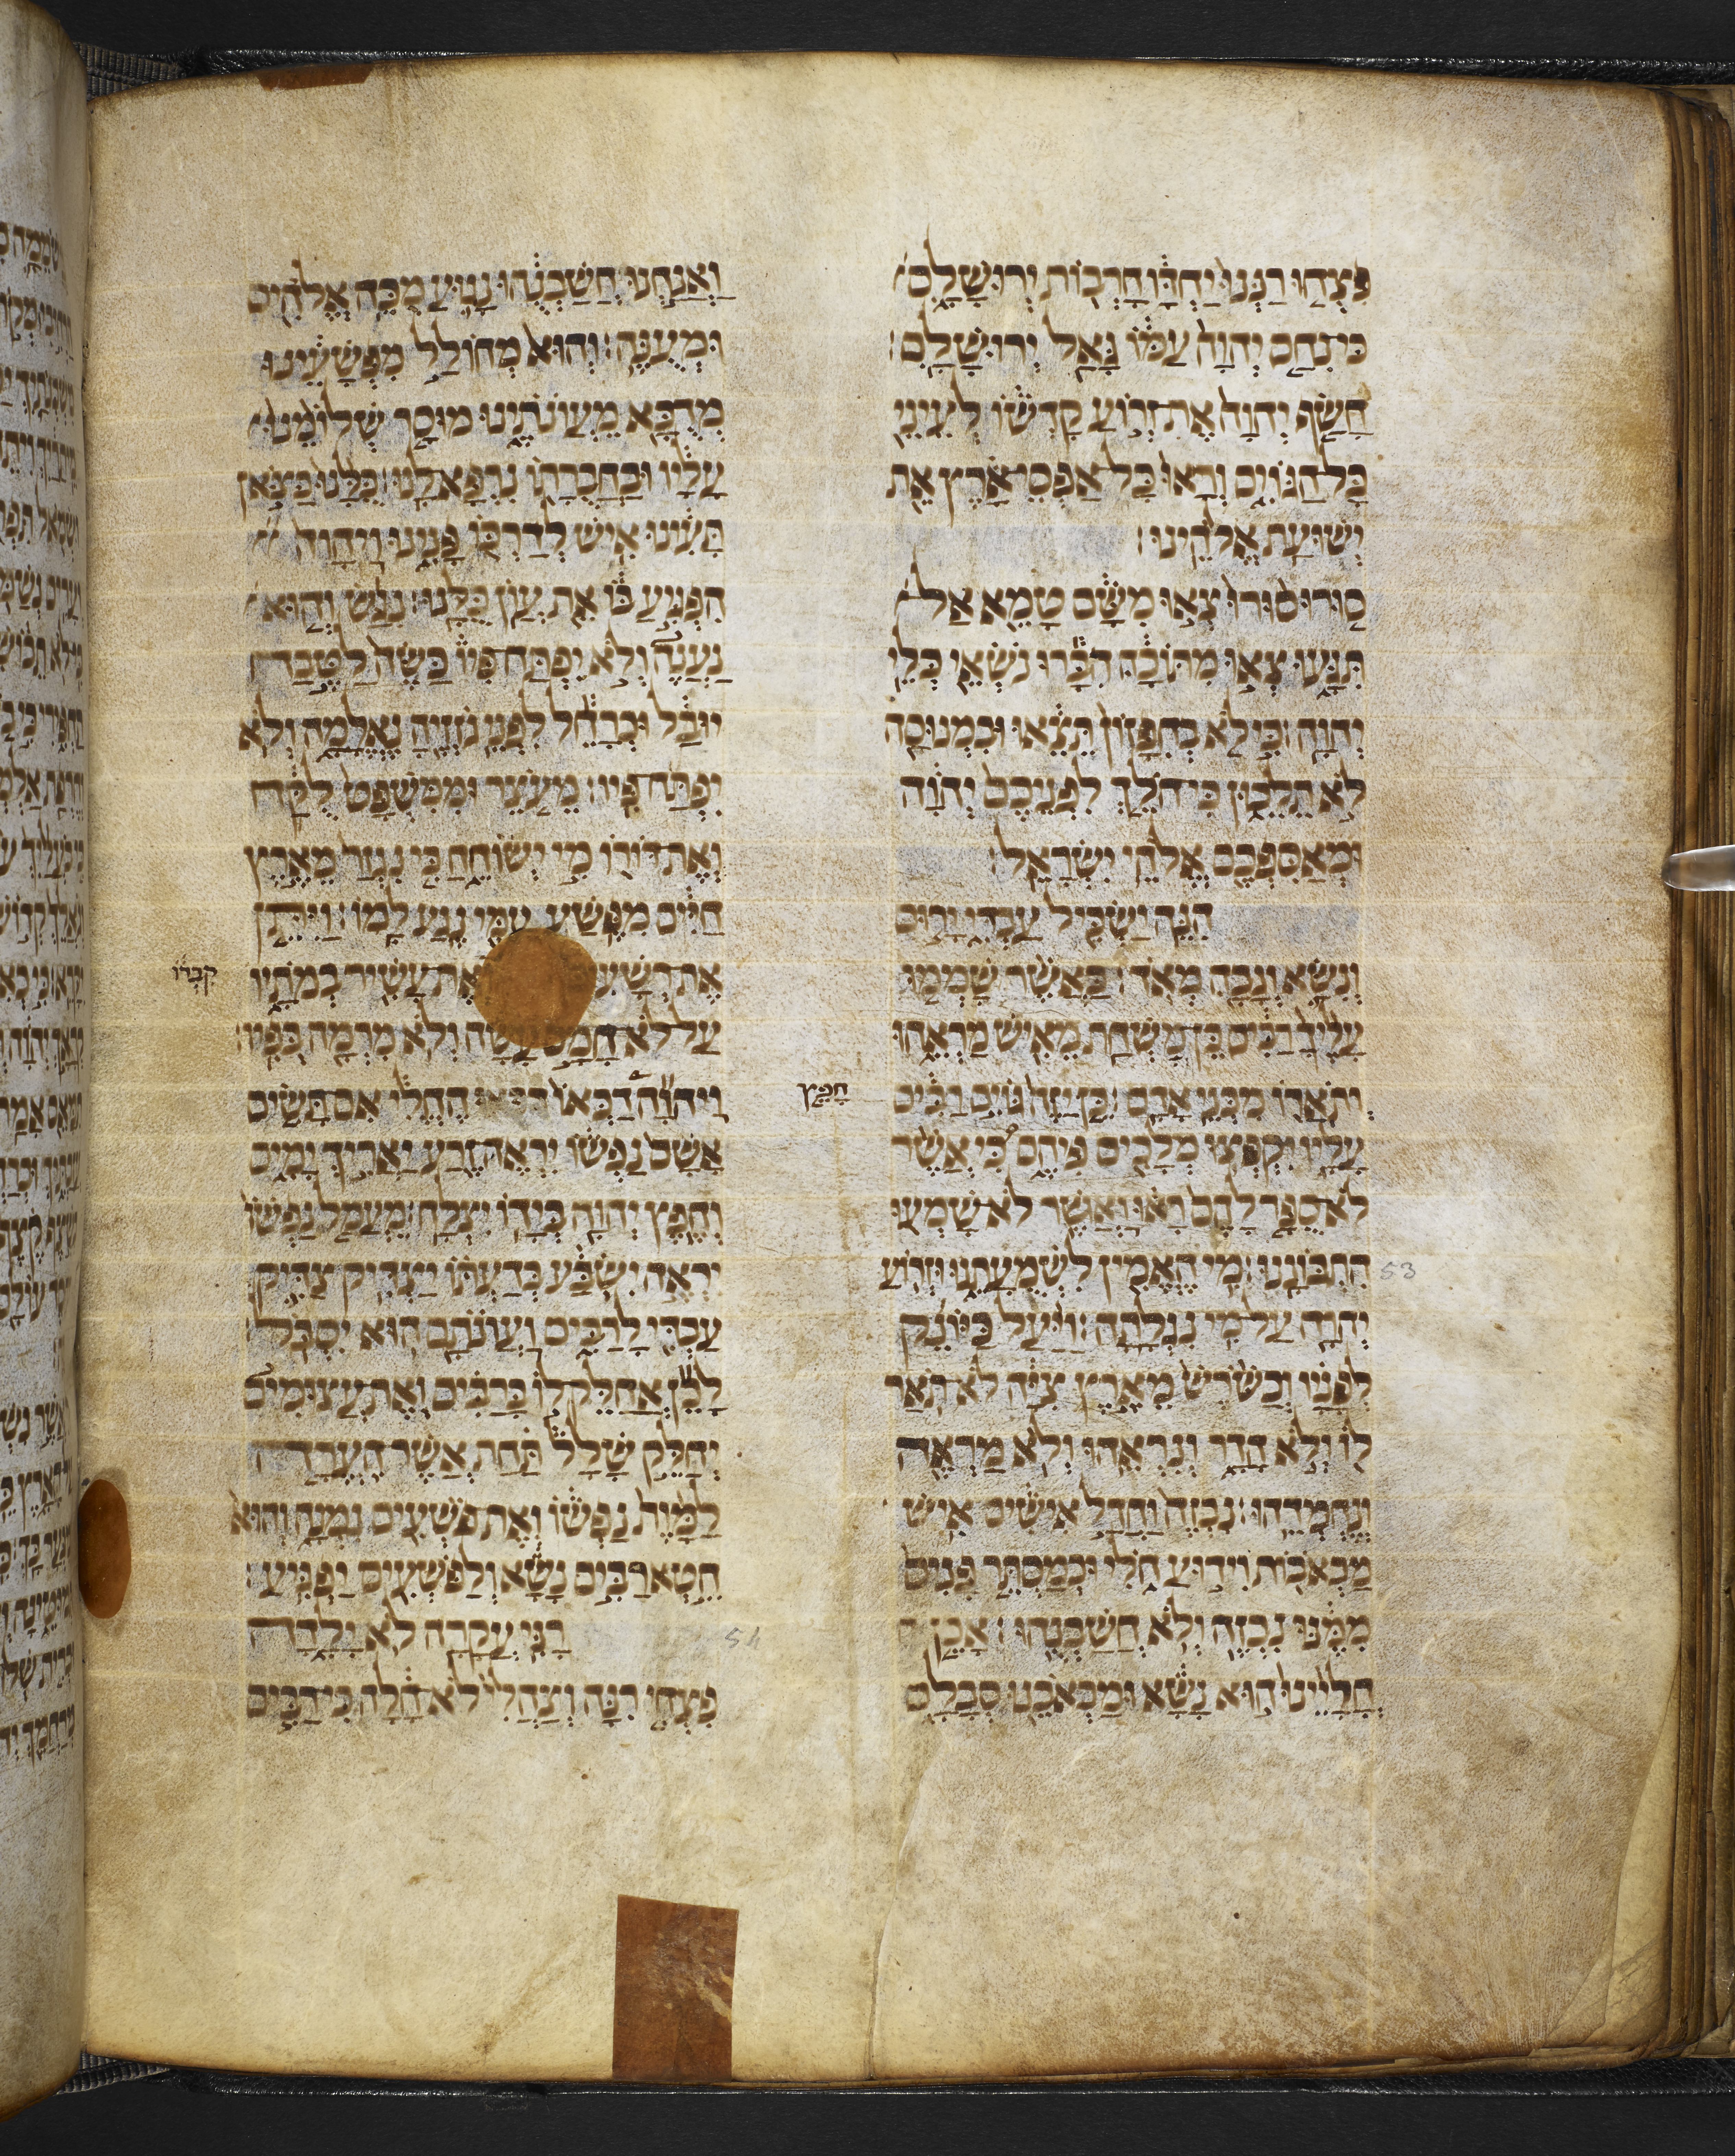 פִּצְחוּ רַנְּנוּ יַחְדָּו חָרְבוֹת יְרוּשָׁלִָם
כִּי נִחַם יְהוָה עַמּוֹ גָּאַל יְרוּשָׁלִָם׃
חָשַׂף יְהוָה אֶת זְרוֹעַ קָדְשׁוֹ לְעֵינֵי
כָּל הַגּוֹיִם וְרָאוּ כָּל אַפְסֵי אָרֶץ אֵת
יְשׁוּעַת אֱלֹהֵינוּ׃
סוּרוּ סוּרוּ צְאוּ מִשָּׁם טָמֵא אַל
תִּגָּעוּ צְאוּ מִתּוֹכָהּ הִבָּרוּ נֹשְׂאֵי כְּלֵי
יְהוָה׃ כִּי לֹא בְחִפָּזוֹן תֵּצֵאוּ וּבִמְנוּסָה
לֹא תֵלֵכוּן כִּי הֹלֵךְ לִפְנֵיכֶם יְהוָה
וּמְאַסִּפְכֶם אֱלֹהֵי יִשְׂרָאֵל׃
הִנֵּה יַשְׂכִּיל עַבְדִּי יָרוּם
וְנִשָּׂא וְגָבַהּ מְאֹד׃ כַּאֲשֶׁר שָׁמְמוּ
עָלֶיךָ רַבִּים כֵּן מִשְׁחַת מֵאִישׁ מַרְאֵהוּ
וְתֹאֲרוֹ מִבְּנֵי אָדָם׃ כֵּן יַזֶּה גּוֹיִם רַבִּים
עָלָיו יִקְפְּצוּ מְלָכִים פִּיהֶם כִּי אֲשֶׁר
לֹא סֻפַּר לָהֶם רָאוּ וַאֲשֶׁר לֹא שָׁמְעוּ
הִתְבּוֹנָנוּ׃ מִי הֶאֱמִין לִשְׁמֻעָתֵנוּ וּזְרוֹעַ
53
יְהוָה עַל מִי נִגְלָתָה׃ וַיַּעַל כַּיּוֹנֵק
לְפָנָיו וְכַשֹּׁרֶשׁ מֵאֶרֶץ צִיָּה לֹא תֹאַר
לוֹ וְלֹא הָדָר וְנִרְאֵהוּ וְלֹא מַרְאֶה
וְנֶחְמְדֵהוּ׃ נִבְזֶה וַחֲדַל אִישִׁים אִישׁ
מַכְאֹבוֹת וִידוּעַ חֹלִי וּכְמַסְתֵּר פָּנִים
מִמֶּנּוּ נִבְזֶה וְלֹא חֲשַׁבְנֻהוּ׃ אָכֵן
חֳלָיֵינוּ הוּא נָשָׂא וּמַכְאֹבֵנוּ סְבָלָם
וַאֲנַחְנוּ חֲשַׁבְנֻהוּ נָגוּעַ מֻכֵּה אֱלֹהִים
וּמְעֻנֶּה׃ וְהוּא מְחוֹלָל מִפְּשָׁעֵינוּ
מְדֻכָּא מֵעֲוֹנֹתֵינוּ מוּסַר שְׁלוֹמֵנוּ
עָלָיו וּבַחֲבֻרָתוֹ נִרְפָּא לָנוּ׃ כֻּלָּנוּ כַּצֹּאן
תָּעִינוּ אִישׁ לְדַרְכּוֹ פָּנִינוּ וַיהוָה
הִפְגִּיעַ בּוֹ אֵת עֲוֹן כֻּלָּנוּ׃ נִגַּשׂ וְהוּא
נַעֲנֶה וְלֹא יִפְתַּח פִּיו כַּשֶּׂה לַטֶּבַח
יוּבָל וּכְרָחֵל לִפְנֵי גֹזְזֶיהָ נֶאֱלָמָה וְלֹא
יִפְתַּח פִּיו׃ מֵעֹצֶר וּמִמִּשְׁפָּט לֻקָּח
וְאֶת דּוֹרוֹ מִי יְשׂוֹחֵחַ כִּי נִגְזַר מֵאֶרֶץ
חַיִּים מִפֶּשַׁע עַמִּי נֶגַע לָמוֹ׃ וַיִּתֵּן
אֶת רְשָׁעִים אֶת עָשִׁיר בְּמֹתָיו
קִבְרוֹ
עַל לֹא חָמָס עָשָׂה וְלֹא מִרְמָה בְּפִיו׃
וַיהוָה דַּכְּאוֹ הֶחֱלִי אִם תָּשִׂים
חָפֵץ
אָשָׁם נַפְשׁוֹ יִרְאֶה זֶרַע יַאֲרִיךְ יָמִים
וְחֵפֶץ יְהוָה בְּיָדוֹ יִצְלָח׃ מֵעֲמַל נַפְשׁוֹ
יִרְאֶה יִשְׂבָּע בְּדַעְתּוֹ יַצְדִּיק צַדִּיק
עַבְדִּי לָרַבִּים וַעֲוֹנֹתָם הוּא יִסְבֹּל׃
לָכֵן אֲחַלֶּק לוֹ בָרַבִּים וְאֶת עֲצוּמִים
יְחַלֵּק שָׁלָל תַּחַת אֲשֶׁר הֶעֱרָה
לַמָּוֶת נַפְשׁוֹ וְאֶת פֹּשְׁעִים נִמְנָה וְהוּא
חֵטְא רַבִּים נָשָׂא וְלַפֹּשְׁעִים יַפְגִּיעַ׃
רָנִּי עֲקָרָה לֹא יָלָדָה
54
פִּצְחִי רִנָּה וְצַהֲלִי לֹא חָלָה כִּי רַבִּים